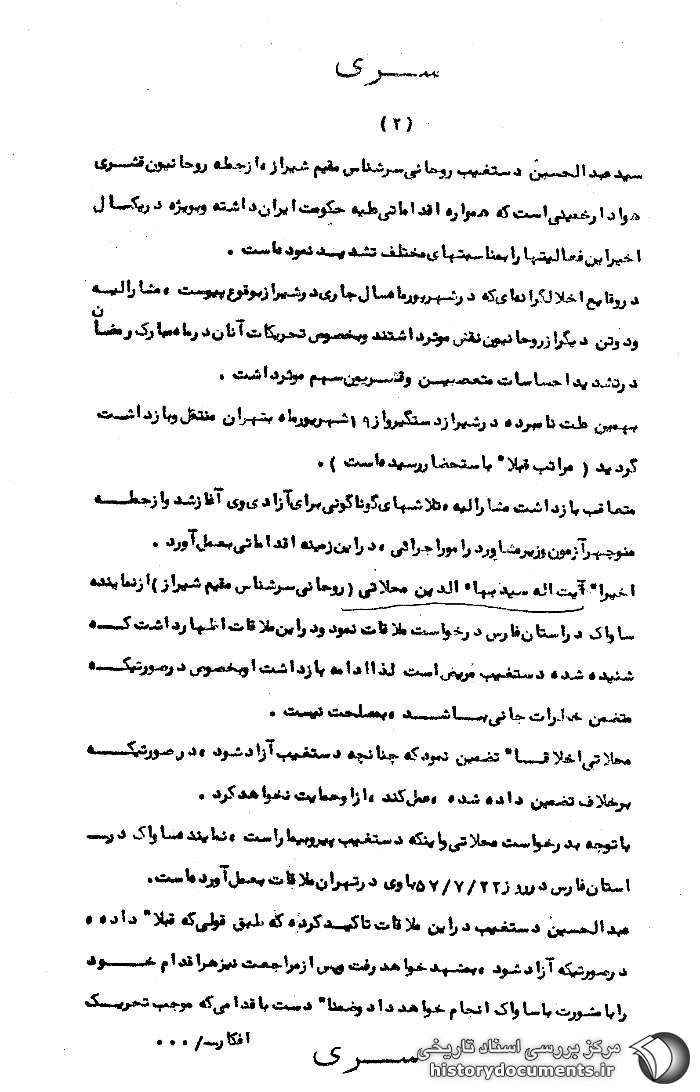 سری
(۲)
سید عبدالحسین دستغیب روحانی سرشناس مقیم شیراز، ازجمله روحانیون قشری
هوادار خمینی است که همواره اقداماتی علیه حکومت ایران داشته و بویژه در یکسال
اخیر این فعالیتها را بمناسبتهای مختلف تشدید نموده است.
در وقایع اخلالگرانه‌ای که در شهریورماه سال جاری در شیراز بوقوع پیوست، مشارالیه
و دو تن دیگر از روحانیون نقش موثر داشتند و بخصوص تحریکات آنان در ماه مبارک رمضان
در تشدید احساسات متعصبین و قشریون سهم موثر داشت.
بهمین علت نامبرده در شیراز دستگیر و از ۱۹ شهریورماه بتهران منتقل و بازداشت
گردید (مراتب قبلا" باستحضار رسیده است).
متعاقب بازداشت مشارالیه، تلاشهای گوناگونی برای آزادی وی آغاز شد و ازجمله
منوچهر آزمون وزیر مشاور در امور اجرائی، در این زمینه اقداماتی بعمل آورد.
اخیرا" آیت اله سید بهاء الدین محلاتی (روحانی سرشناس مقیم شیراز) از نماینده
ساواک در استان فارس درخواست ملاقات نمود و در این ملاقات اظهار داشت که
شنیده شده دستغیب مریض است لذا ادامه بازداشت او بخصوص در صورتیکه
متضمن خطرات جانی باشد، بمصلحت نیست.
محلاتی اخلاقا" تضمین نمود که چنانچه دستغیب آزاد شود، در صورتیکه
برخلاف تضمین داده شده، عمل کند، از او حمایت نخواهد کرد.
با توجه بدرخواست محلاتی و اینکه دستغیب پیر و بیمار است، نماینده ساواک در
استان فارس در روز ۵۷/۷/۲۲ با وی در تهران ملاقات بعمل آورده است.
عبدالحسین دستغیب در این ملاقات تاکید کرده که طبق قولی که قبلا" داده،
در صورتیکه آزاد شود، بمشهد خواهد رفت و پس از مراجعت نیز هر اقدام خود
را با مشورت با ساواک انجام خواهد داد و ضمنا" دست باقدامی که موجب تحریک
افکار /...
سری
مرکز بررسی اسناد تاریخی
historydocuments.ir